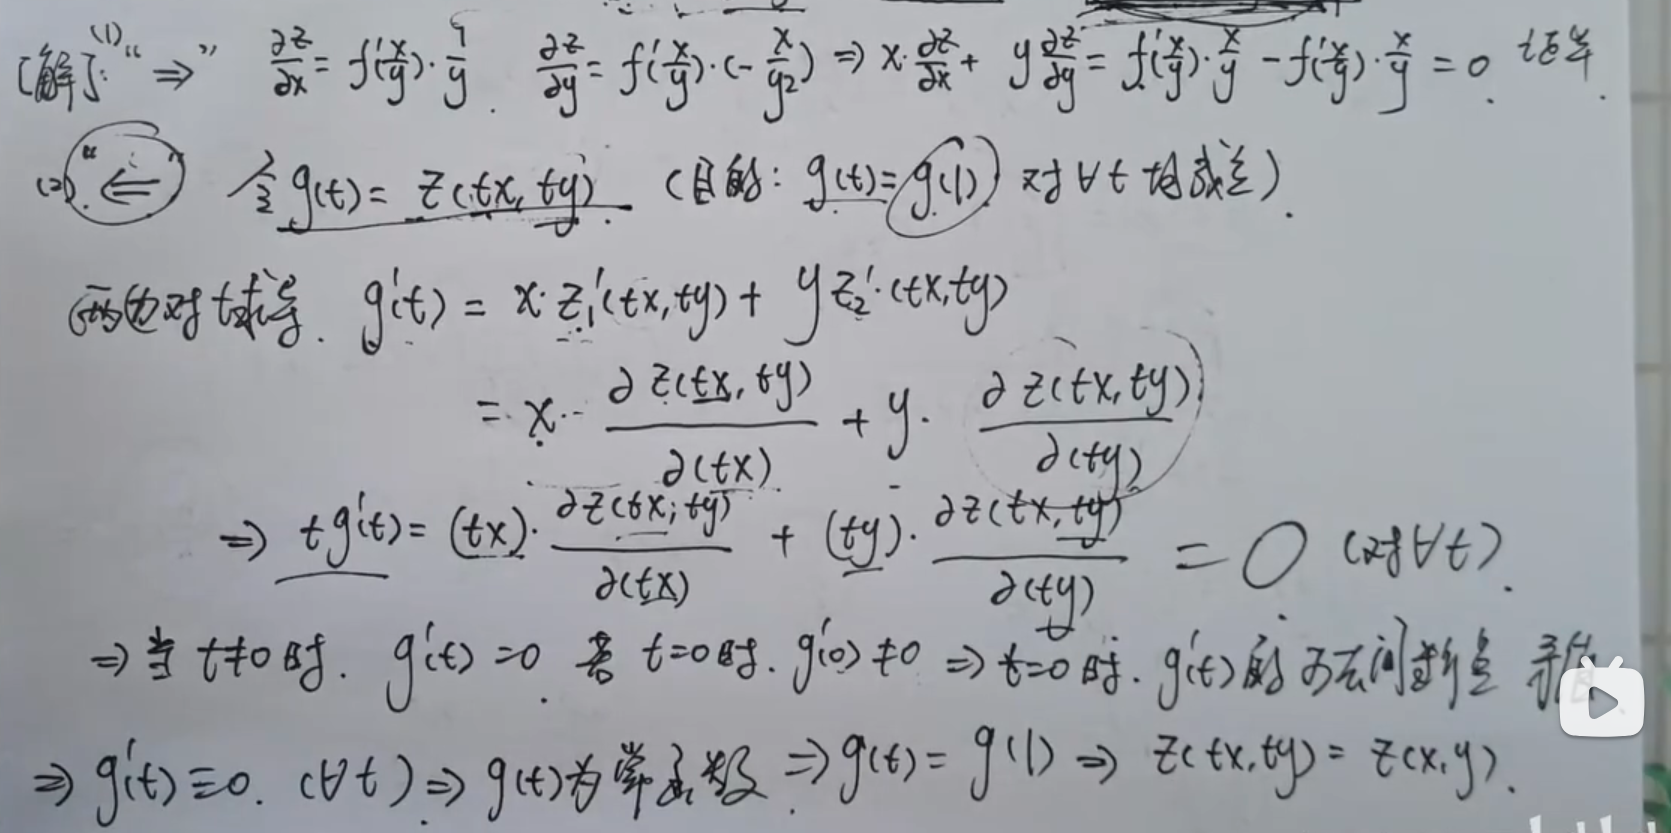 [解]: (1) “⇒” ∂z/∂x = f'(x/y)·1/y. ∂z/∂y = f'(x/y)·(-x/y²) ⇒ x·∂z/∂x + y∂z/∂y = f'(x/y)·x/y - f'(x/y)·x/y = 0.
(2) “⇐” 令 g(t) = z(tx, ty). (目的: g(t) = g(1) 对∀t 均成立).
两边对t求导. g'(t) = x·z₁'(tx, ty) + y z₂'·(tx, ty)
= x·∂z(tx, ty)/∂(tx) + y·∂z(tx, ty)/∂(ty)
⇒ tg'(t) = (tx)·∂z(tx, ty)/∂(tx) + (ty)·∂z(tx, ty)/∂(ty) = 0 (对∀t).
⇒ 当 t≠0时. g'(t) = 0. 若 t=0时. g'(0) ≠ 0 ⇒ t=0时. g'(t)的可去间断点
⇒ g'(t) ≡ 0. (∀t) ⇒ g(t)为常函数. ⇒ g(t) = g(1) ⇒ z(tx, ty) = z(x, y).